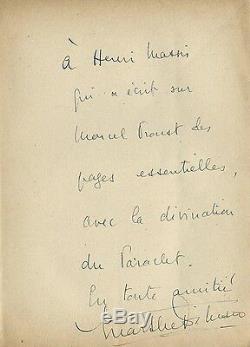 à Henri Massis
qui a écrit sur
Marcel Proust des
pages essentielles,
avec la divination
du Paraclet.
En toute amitié
Marthe Bibesco